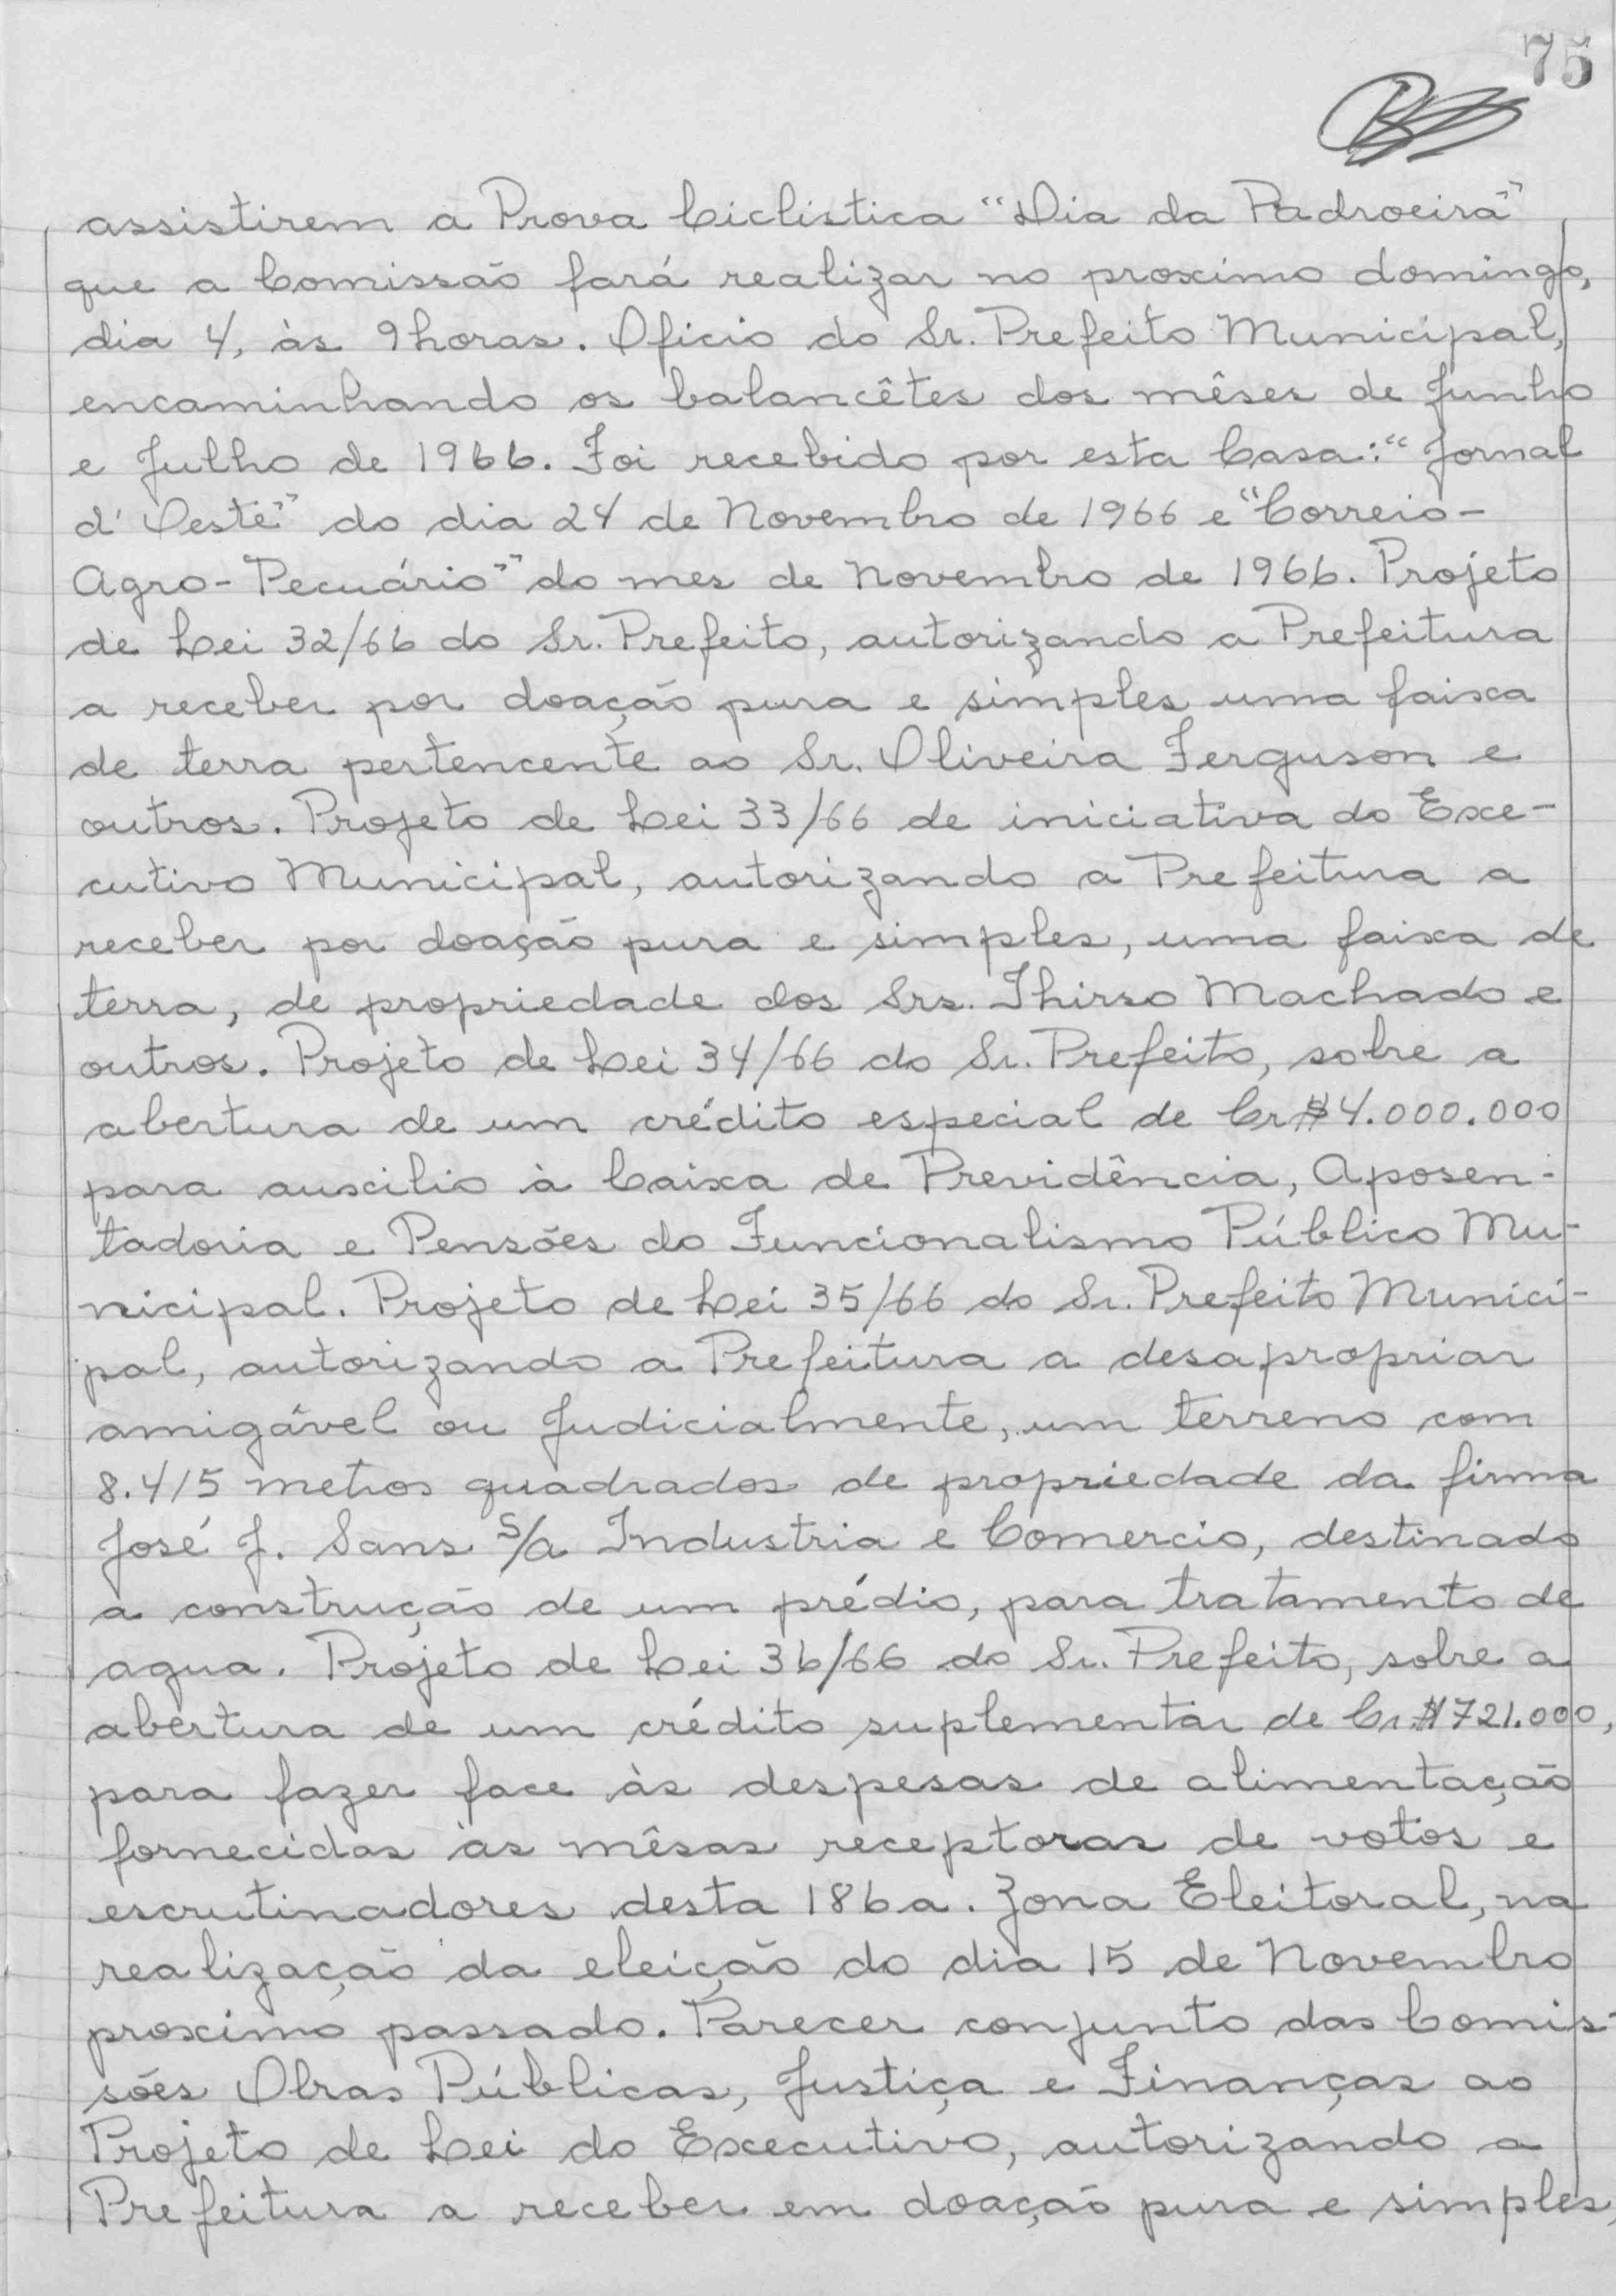 75
assistirem a Prova Ciclistica "Dia da Padroeira"
que a Comissão fará realizar no proximo domingo,
dia 4, às 9 horas. Oficio do Sr. Prefeito Municipal,
encaminhando os balancêtes dos mêses de Junho
e Julho de 1966. Foi recebido por esta Casa: "Jornal
d' Oeste" do dia 24 de Novembro de 1966 e "Correio-
Agro-Pecuário" do mes de Novembro de 1966. Projeto
de Lei 32/66 do Sr. Prefeito, autorizando a Prefeitura
a receber por doação pura e simples uma faixa
de terra pertencente ao Sr. Oliveira Ferguson e
outros. Projeto de Lei 33/66 de iniciativa do Exe-
cutivo Municipal, autorizando a Prefeitura a
receber por doação pura e simples, uma faixa de
terra, de propriedade dos Srs. Thirso Machado e
outros. Projeto de Lei 34/66 do Sr. Prefeito, sobre a
abertura de um crédito especial de Cr$4.000.000
para auxilio à Caixa de Previdência, Aposen-
tadoria e Pensões do Funcionalismo Público Mu-
nicipal. Projeto de Lei 35/66 do Sr. Prefeito Munici-
pal, autorizando a Prefeitura a desapropriar
amigável ou Judicialmente, um terreno com
8.415 metros quadrados de propriedade da firma
José J. Sans S/A Industria e Comercio, destinado
a construção de um prédio, para tratamento de
agua. Projeto de Lei 36/66 do Sr. Prefeito, sobre a
abertura de um crédito suplementar de Cr$721.000,
para fazer face às despesas de alimentação
fornecidas às mêsas receptoras de votos e
escrutinadores desta 186a. Zona Eleitoral, na
realização da eleição do dia 15 de Novembro
proximo passado. Parecer conjunto das Comis-
sões Obras Públicas, Justiça e Finanças ao
Projeto de Lei do Executivo, autorizando a
Prefeitura a receber em doação pura e simples,